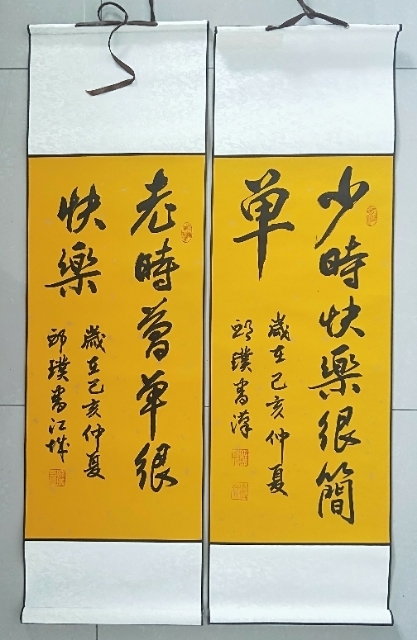 少時快樂很簡
単
歲在己亥仲夏
邱璞書漢
老時簡単很
快樂
歲在己亥仲夏
邱璞書江城